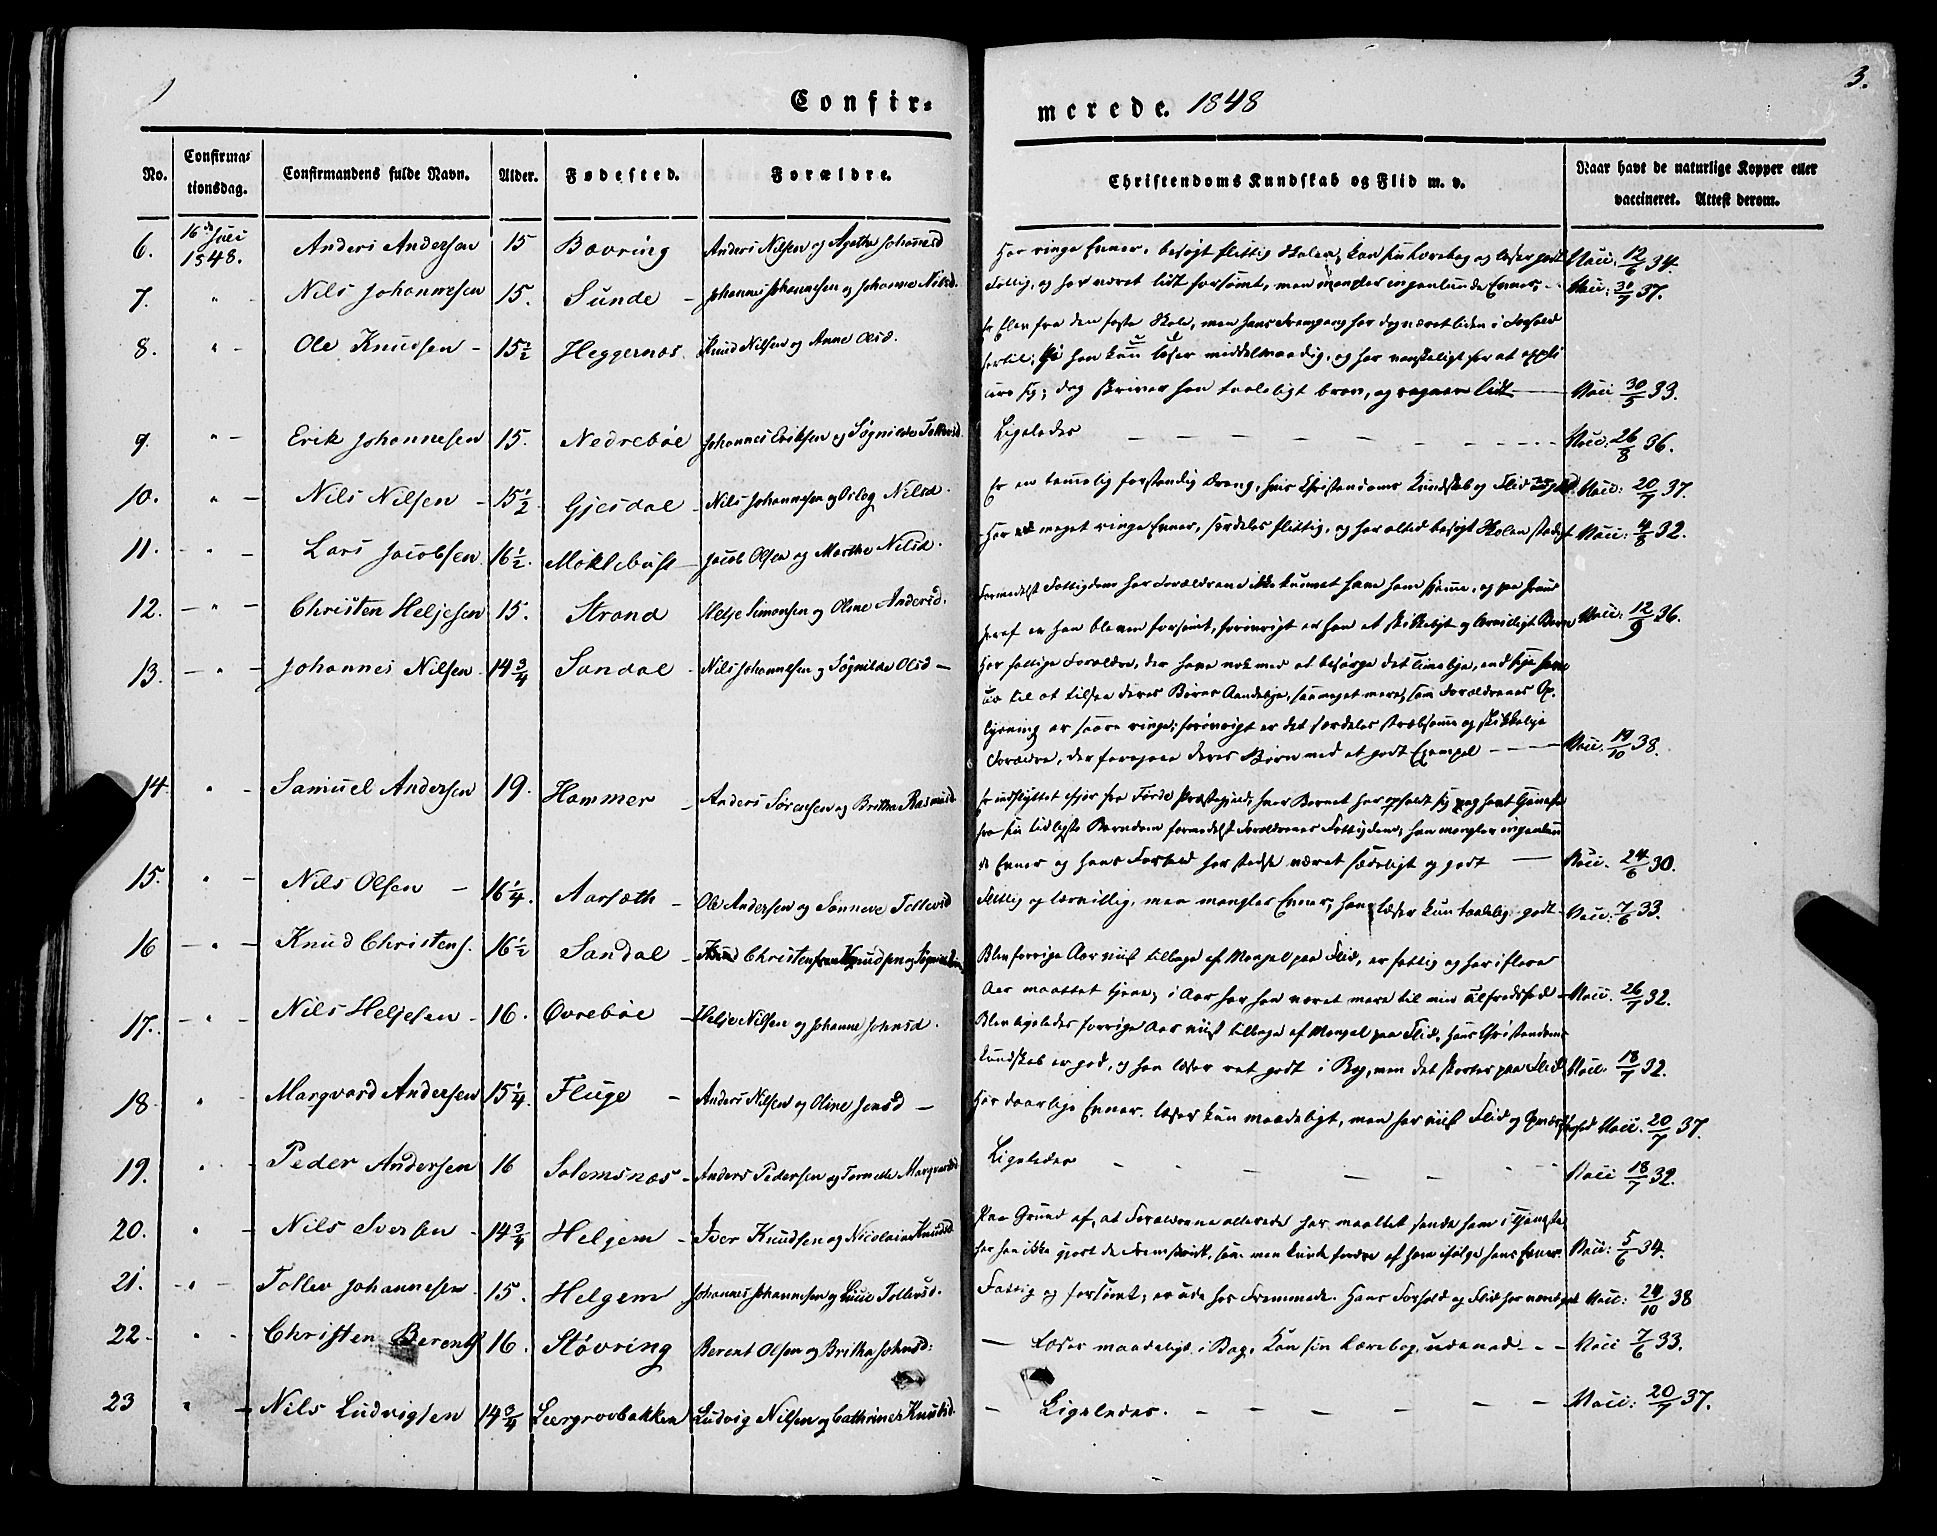 Confir-
merede. 1848
3.
No. Confirma-
tionsdag. Confirmandens fulde Navn. Alder. Fødested. Forældre. Christendoms Kundskab og Flid m. v. Naar havt de naturlige Kopper eller
vaccineret. Attest derom.
6. 16de Juli 1848. Anders Andersen 15 Bævring Anders Nilsen og Agathe Johannesd Har ringe Evner, besøgt flittig Skolen, kan sin Lærebog og læser godt Vacc. 12/6 34.
7. " - Nils Johannesen 15. Sunde - Johannes Johannesen og Johanne Nilsd. Fattig, og har været lidt forsømt, men mangler ingenlunde Evner; Vacc: 30/7 37.
8. " - Ole Knudsen - 15½ Heggernæs. Knud Nilsen og Anne Olsd. Er Elev fra den faste Skole, men hans Fremgang har dog været liden i Forhold
hertil; han kun læser middelmaadig, og har vanskeligt for at
sig; dog skriver han taaleligt brav, og regner lidt Vacc 30/5 33.
9. " - Erik Johannesen 15. Nedrebøe Johannes Eriksen og Søgnilde Tollevsd. Ligeledes Vacc: 26/8 36.
10. " - Nils Nilsen - 15½ Gjesdal - Nils Johannesen og Oslog Nilsd. Er en temmelig forstandig Dreng, hvis Christendoms Kundskab og Flid er god Vacc: 20/7 37.
11. - " - Lars Jacobsen 16½. Møklebust - Jacob Olsen og Marthe Nilsd. Har meget ringe Evner, særdeles flittig, og har altid besøgt Skolen stadigt Vacc: 4/8 32.
12. - " - Christen Heljesen 15. Strand Helje Simonsen og Oline Andersd. Formedelst Fattigdom har Forældrene ikke kunnet have ham hjemme, og paa Grund
heraf er han bleven forsømt, forøvrigt er han et skikkeligt og lærvilligt Barn Vacc: 12/9 36.
13. - " - Johannes Nilsen 14¾ Sandal - Nils Johannesen og Søgnilde Olsd - Har fattige Forældre, der have nok med at besørge det Timelige, end sige have
til at tilsee deres Børns Aandelige, saameget mere, som Forældrenes Op-
lysning er saare ringe; forøvrigt er det særdeles stræbsomme og skikkelige
Forældre, der foregaae deres Børn med et godt Exempel - - - Vacc. 19/10 38.
14. " - Samuel Andersen 19. Hammer - Anders Sørensen og Britha Rasmusd. Er indflyttet ifjor fra Førde Præstegjeld, hvor Barnet har opholdt sig og havt Tjeneste
fra sin tidligste Barndom formedelst Forældrenes Fattigdom; han mangler ingenlun-
de Evner og hans Forhold har stedse været sædeligt og godt - Vacc. 24/6 30.
15. " - Nils Olsen - 16¼ Aarsæth - Ole Andersen og Sønneve Tollevsd Flittig og lærvillig, men mangler Evner; han læser kun taalelig godt - Vacc: 7/6 33.
16 - " - Knud Christens. 16½ Sandal - Christen Knudsen og Blev forrige Aar viist tilbage af Mangel paa Flid, er fattig og har i flere
Aar maattet tjene; i Aar har han været mere til min Tilfredshed - Vacc. 26/7 32.
17. - " - Nils Heljesen - 16. Ovrebøe - Helje Nilsen og Johanne Johnsd. Blev ligeledes forrige Aar viist tilbage af Mangel paa Flid, Hans Christendoms
Kundskab er god, og han læser ret godt i Bog, men det skorter paa Flid Vacc. 18/7 32.
18. " - Margvard Andersen 15¼. Fluge - Anders Nilsen og Oline Jensd - Har daarlige Evner. læser kun maadeligt, men har viist Flid og Vacc. 20/7 37.
19. " - Peder Andersen 16 Solemsnæs - Anders Pedersen og Tornelle Margvardsd Ligeledes Vacc 18/7 32.
20. " - Nils Iversen - 14¾ Helgem - Iver Knudsen og Nicolaine Knudsd. Paa Grund af, at Forældrene allerede har maattet sende ham i Tjeneste
har han ikke gjort de Fremskridt, som man kunde fordre af ham ifølge hans Evner. Vacc: 5/6 34.
21. - " - Tollev Johannesen 15. Helgem Johannes Johannesen og Lucie Tollevsd. Fattig og forsømt, er ude hos Fremmede. Hans Forhold og Flid har været godt Vacc: 24/10 38
22 - " - Christen Berents. 16. Støvring Berent Olsen og Britha Johnsd: - Læser maadeligt i Bog, kan sin Lærebog udenad. - - Vacc 7/6 33.
23 " - Nils Ludvigsen 14¾ Lærgrovbakken Ludvig Nilsen og Cathrine Knudsd. - Ligeledes. - - - - - - Vacc: 20/7 37.